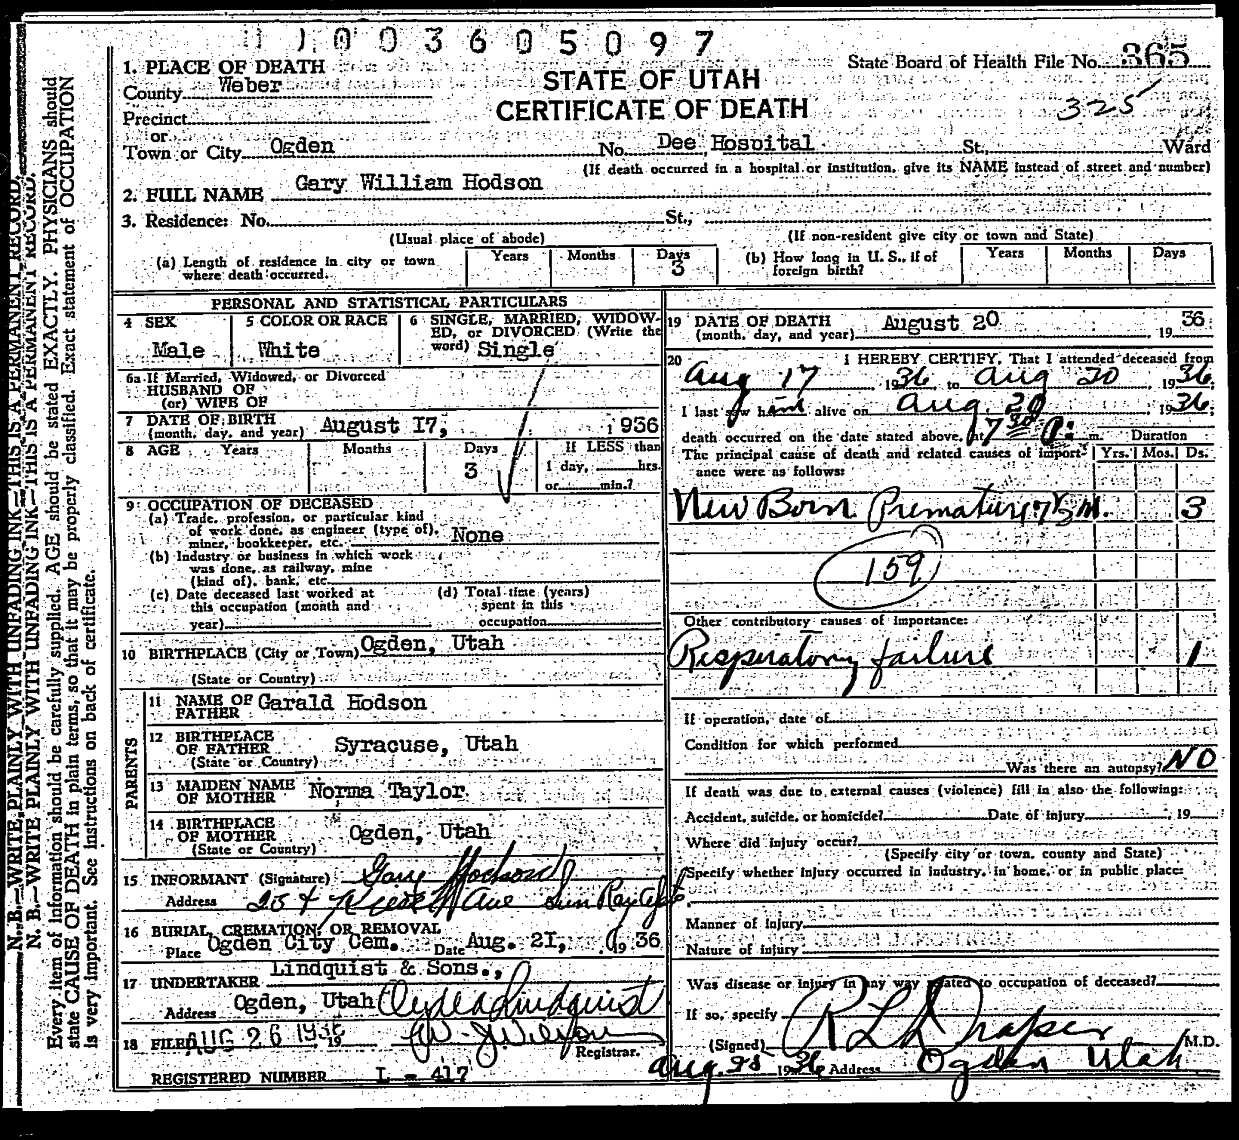 1003605097
State Board of Health File No. 365
325
STATE OF UTAH
CERTIFICATE OF DEATH
1. PLACE OF DEATH
County Weber
Precinct
or
Town or City Ogden No. Dee Hospital St., Ward
(If death occurred in a hospital or institution, give its NAME instead of street and number)
2. FULL NAME Gary William Hodson
3. Residence: No. St.,
(Usual place of abode) (If non-resident give city or town and State)
(a) Length of residence in city or town where death occurred. Years Months Days 3
(b) How long in U. S., if of foreign birth? Years Months Days
PERSONAL AND STATISTICAL PARTICULARS
4 SEX Male
5 COLOR OR RACE White
6 SINGLE, MARRIED, WIDOWED, or DIVORCED (Write the word) Single
6a If Married, Widowed, or Divorced
HUSBAND OF
(or) WIFE OF
7 DATE OF BIRTH (month, day, and year) August 17, 1936
8 AGE Years Months Days 3 If LESS than 1 day, hrs. or min.?
9 OCCUPATION OF DECEASED
(a) Trade, profession, or particular kind of work done, as engineer (type of), miner, bookkeeper, etc. None
(b) Industry or business in which work was done, as railway, mine (kind of), bank, etc.
(c) Date deceased last worked at this occupation (month and year)
(d) Total time (years) spent in this occupation
10 BIRTHPLACE (City or Town) Ogden, Utah
(State or Country)
PARENTS
11 NAME OF FATHER Garald Hodson
12 BIRTHPLACE OF FATHER (State or Country) Syracuse, Utah
13 MAIDEN NAME OF MOTHER Norma Taylor
14 BIRTHPLACE OF MOTHER (State or Country) Ogden, Utah
15 INFORMANT (Signature) Hodson
Address Ave Sun Ray Apts.
16 BURIAL, CREMATION, OR REMOVAL
Place Ogden City Cem. Date Aug. 21, 1936
17 UNDERTAKER Lindquist & Sons.,
Address Ogden, Utah Clyde A Lindquist
18 FILED AUG 26 1936 19 W. J. Wilson
Registrar.
REGISTERED NUMBER L - 417
19 DATE OF DEATH (month, day, and year) August 20 1936
20 I HEREBY CERTIFY, That I attended deceased from
Aug 17, 1936, to Aug 20, 1936,
I last saw him alive on Aug 20, 1936,
death occurred on the date stated above, at 7 30 P. m. Duration
The principal cause of death and related causes of importance were as follows: Yrs. Mos. Ds.
New Born Premature 7½ M. 3
159
Other contributory causes of importance:
Respiratory failure 1
If operation, date of
Condition for which performed
Was there an autopsy? NO
If death was due to external causes (violence) fill in also the following:
Accident, suicide, or homicide? Date of injury , 19
Where did injury occur?
(Specify city or town, county and State)
Specify whether injury occurred in industry, in home, or in public place:
Manner of injury
Nature of injury
Was disease or injury in any way related to occupation of deceased?
If so, specify
(Signed) R L Draper M.D.
Aug. 1936 Address Ogden Utah
N. B.—WRITE PLAINLY WITH UNFADING INK—THIS IS A PERMANENT RECORD.
N. B.—WRITE PLAINLY WITH UNFADING INK—THIS IS A PERMANENT RECORD.
Every item of information should be carefully supplied. AGE should be stated EXACTLY. PHYSICIANS should
state CAUSE OF DEATH in plain terms, so that it may be properly classified. Exact statement of OCCUPATION
is very important. See instructions on back of certificate.